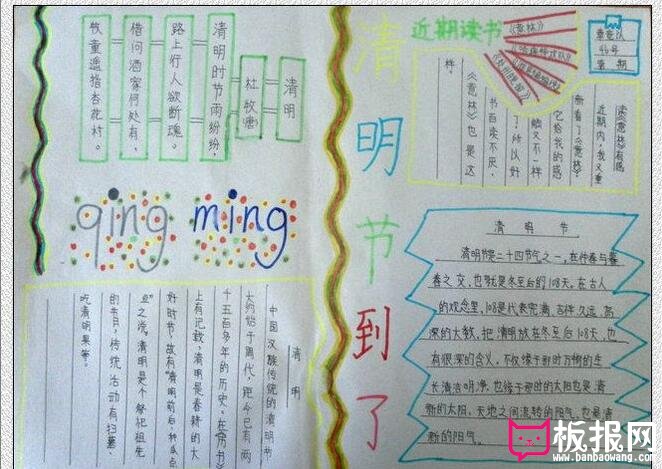 清明
杜牧(唐)
清明时节雨纷纷,
路上行人欲断魂。
借问酒家何处有,
牧童遥指杏花村。
qing ming
清明
中国汉族传统的清明节
大约始于周代,距今已有两
千五百多年的历史。在《周书》
上有记载,清明是春耕的大
好时节,故有"清明前后,种瓜点
豆"之说。清明是个祭祀祖先
的节日,传统活动有扫墓、
吃清明果等。
清明节到了
近期读书
《意林》
读《意林》有感
近期内,我又重
新看了《意林》,
它给我的感
触又不一样
了!所以好
书百读不厌,
《意林》也是这
样
清明节
清明节是二十四节气之一,在仲春与暮
春之交,也就是冬至后的108天。在古人
的观念里,108是代表完满、吉祥、久远、高
深的大数。把清明放在冬至后108天,也
有很深的含义,不仅缘于那时万物的生
长清洁明净,也缘于那时的太阳也是清
新的太阳。天地之间流转的阳气,也是清
新的阳气。
板报网
www.banbaowang.com